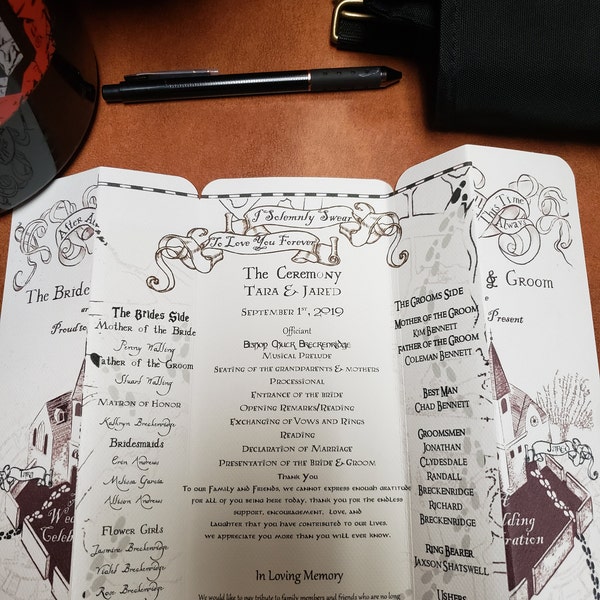 After Al
The Bride
Proud to
The Brides Side
Mother of the Bride
Penny Walling
Father of the Groom
Stuart Walling
Matron of Honor
Kathryn Breckenridge
Bridesmaids
Erin Andrews
Melissa Garcia
Allison Andrews
Flower Girls
Jasmine Breckenridge
Violet Breckenridge
Rose Breckenridge
I Solemnly Swear
To Love You Forever
The Ceremony
Tara & Jared
September 1st, 2019
Officiant
Bishop Chuck Breckenridge
Musical Prelude
Seating of the grandparents & mothers
Processional
Entrance of the bride
Opening Remarks/Reading
Exchanging of Vows and Rings
Reading
Declaration of Marriage
Presentation of the Bride & Groom
Thank You
To our Family and Friends, we cannot express enough gratitude
for all of you being here today. Thank you for the endless
support, encouragement, Love, and
Laughter that you have contributed to our lives.
we appreciate you more than you will ever know.
In Loving Memory
We would like to pay tribute to family members and friends who are no long
The Grooms Side
Mother of the Groom
Kim Bennett
Father of the Groom
Coleman Bennett
Best Man
Chad Bennett
Groomsmen
Jonathan
Clydesdale
Randall
Breckenridge
Richard
Breckenridge
Ring Bearer
Jaxson Shatswell
Ushers
This Time
Always
& Groom
Present
Tara
We
Celeb
Jared
dding
bration